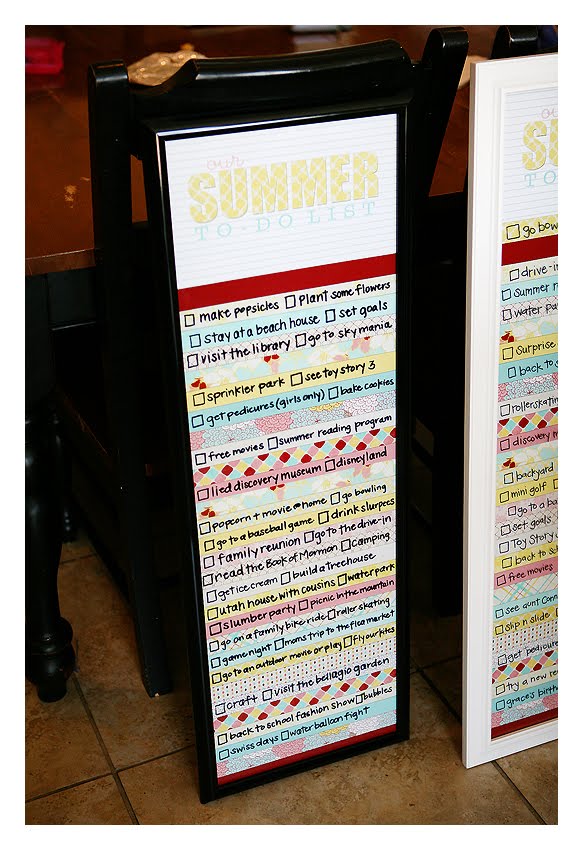 our
SUMMER
TO-DO LIST
make popsicles plant some flowers
stay at a beach house set goals
visit the library go to sky mania
sprinkler park see toy story 3
get pedicures (girls only) bake cookies
free movies summer reading program
lied discovery museum disneyland
popcorn + movie @ home go bowling
go to a baseball game drink slurpees
family reunion go to the drive-in
read the Book of Mormon camping
get ice cream build a treehouse
utah house with cousins water park
slumber party picnic in the mountain
go on a family bike ride roller skating
game night moms trip to the flea market
go to an outdoor movie or play fly our kites
craft visit the bellagio garden
back to school fashion show bubbles
swiss days water balloon fight
our
SU
TO-D
go bow
drive-in
Summer r
water pa
Surprise
back to s
rollerskatin
discovery m
backyard
mini golf
go to a ba
set goals
Toy Story
back to sch
free movies
see aunt Conn
slip n slide
get pedicure
try a new re
grace's birth